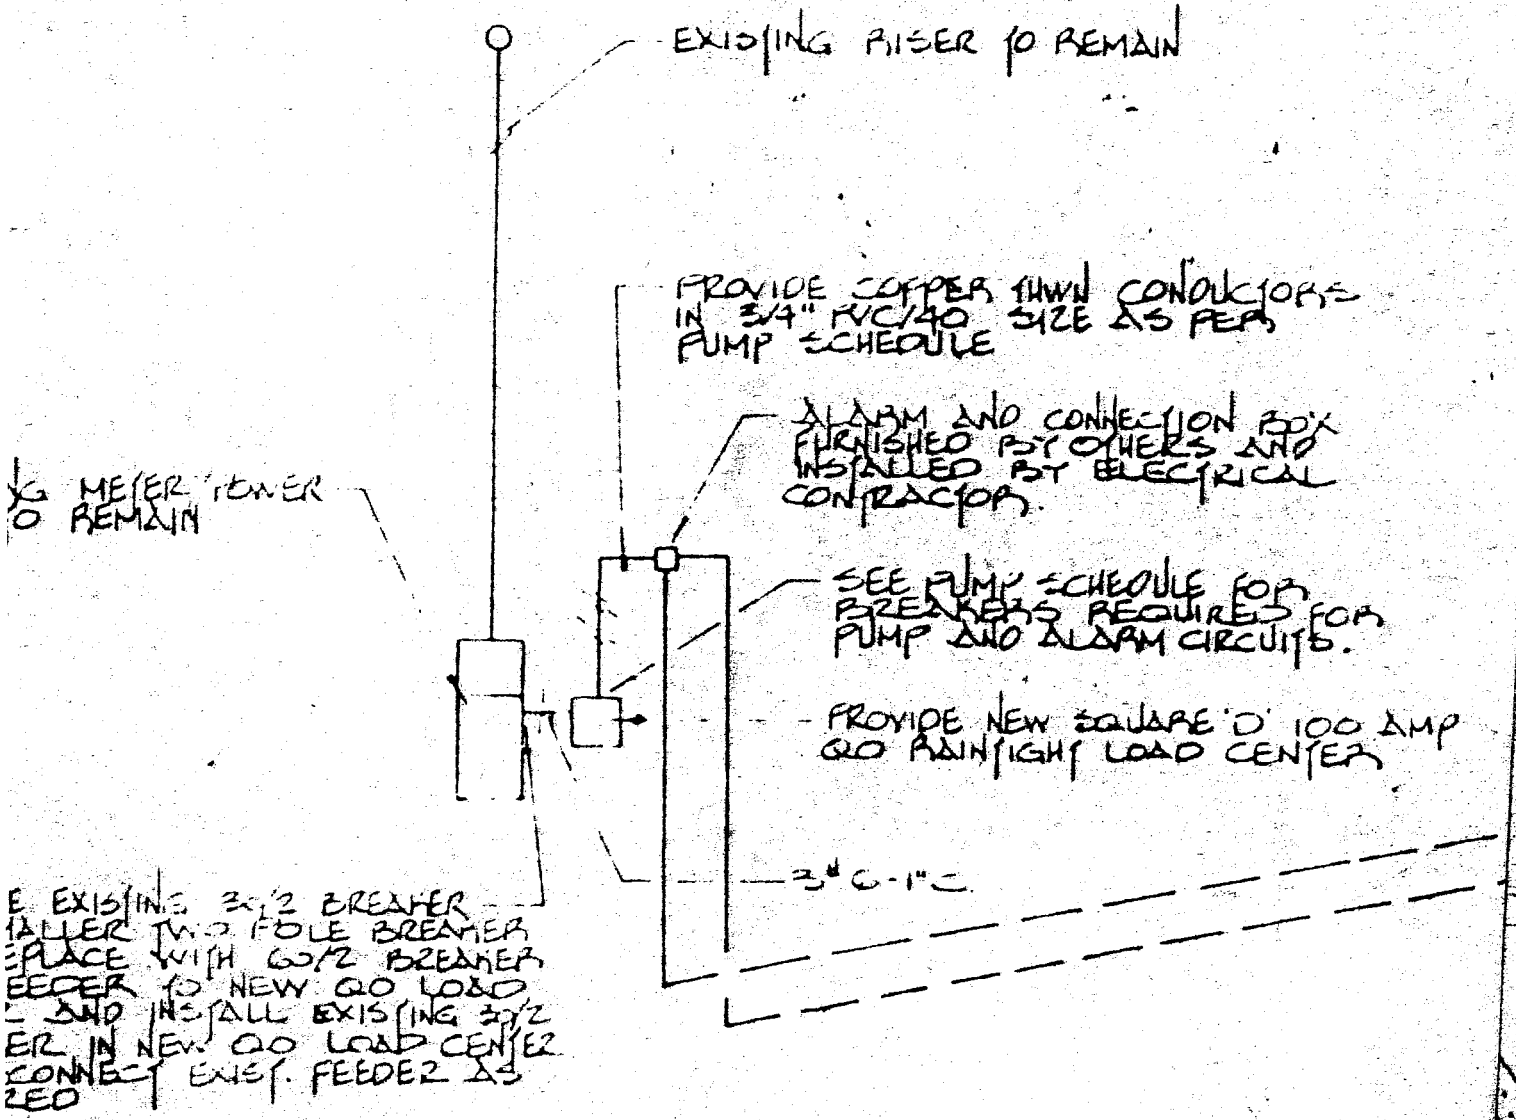 EXISTING RISER TO REMAIN
PROVIDE COPPER THWN CONDUCTORS
IN 3/4" PVC/40 SIZE AS PER
PUMP SCHEDULE
ALARM AND CONNECTION BOX
FURNISHED BY OTHERS AND
INSTALLED BY ELECTRICAL
CONTRACTOR.
NG METER TOWER
O REMAIN
SEE PUMP SCHEDULE FOR
BREAKERS REQUIRED FOR
PUMP AND ALARM CIRCUITS.
PROVIDE NEW SQUARE 'D' 100 AMP
QO RAINTIGHT LOAD CENTER
3#6-1"C
E EXISTING 30/2 BREAKER
MALLER TWO POLE BREAKER
EPLACE WITH 60/2 BREAKER
EEDER TO NEW QO LOAD
AND INSTALL EXISTING 30/2
ER IN NEW QO LOAD CENTER
CONNECT EXIST. FEEDER AS
RED